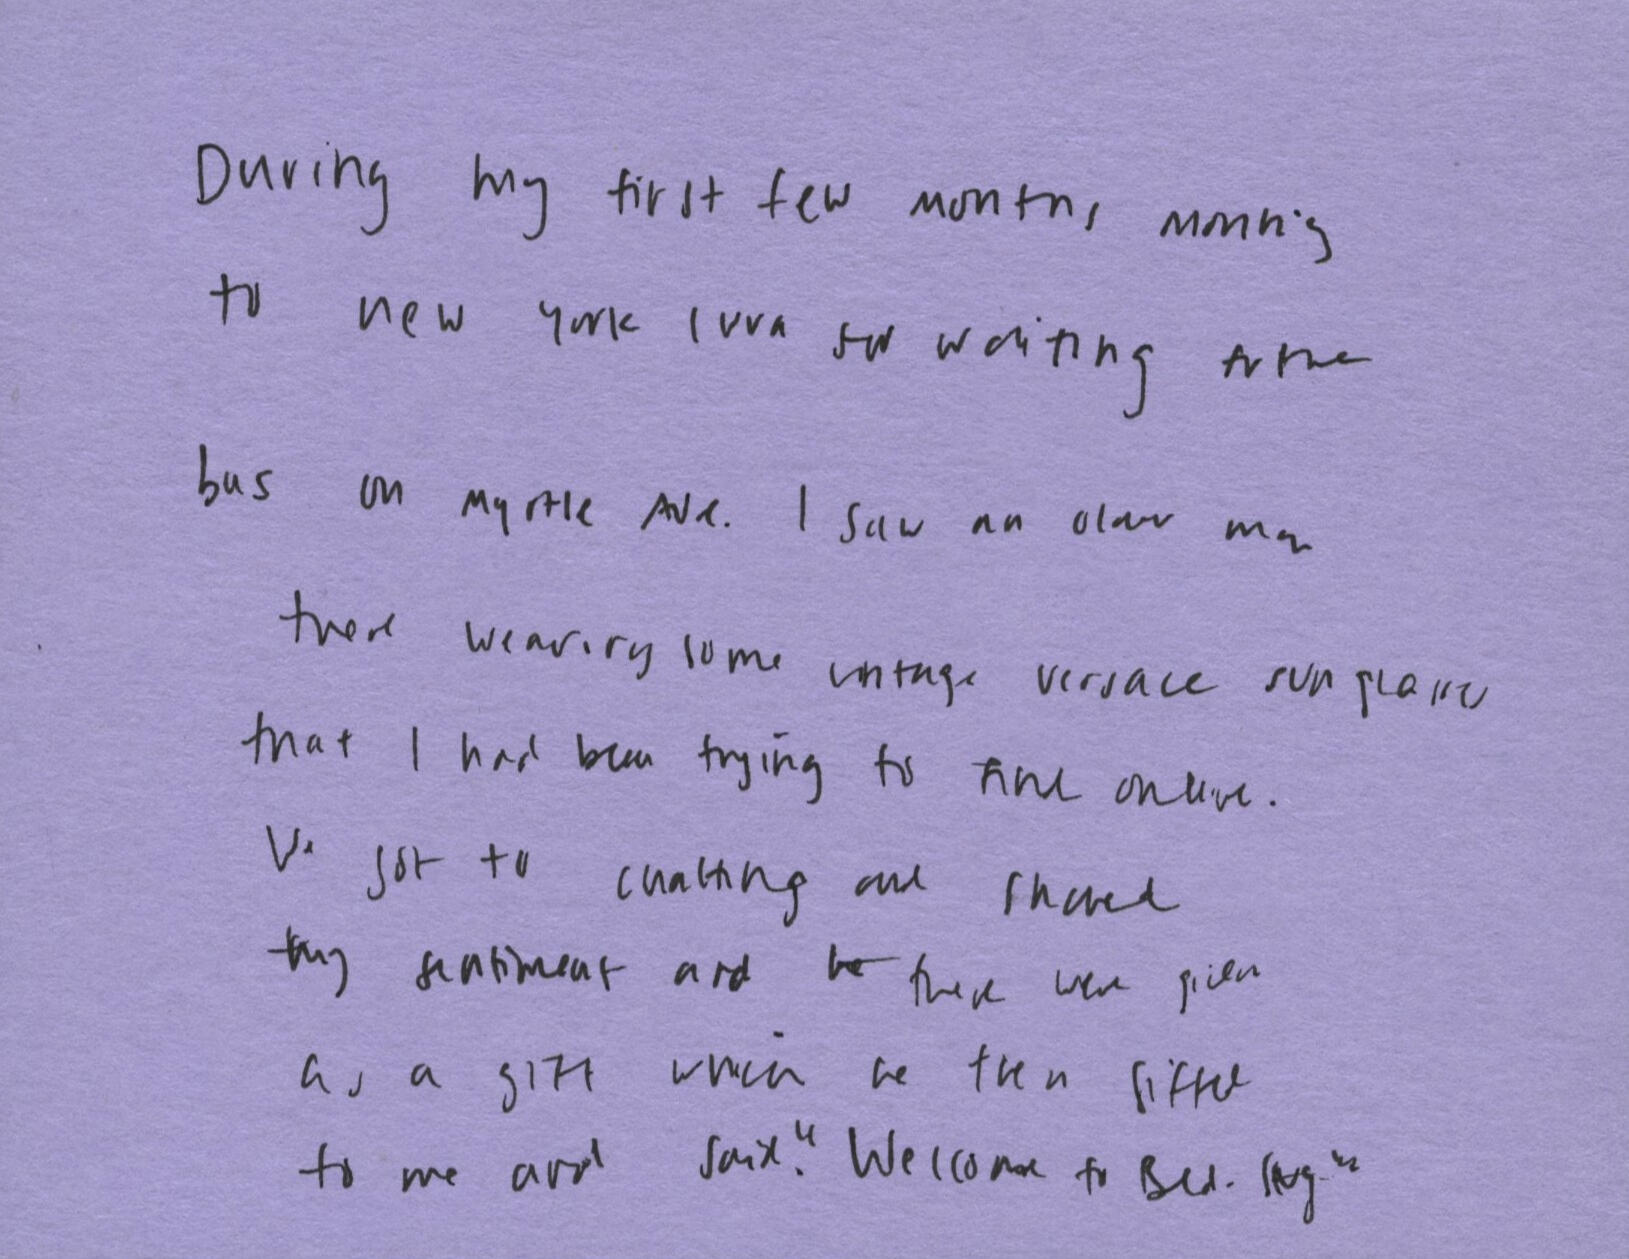 During my first few months moving
to new york I was sat waiting for the
bus on Myrtle Ave. I saw an older man
there wearing some vintage versace sunglasses
that I had been trying to find online.
We got to chatting and shared
this sentiment and there were given
as a gift which he then gifted
to me and said: "Welcome to Bed-Stuy"